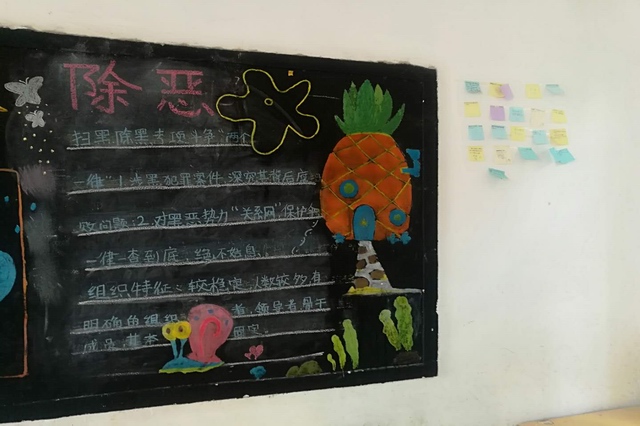 除恶
扫黑除恶专项斗争"两个
一律"1.涉黑犯罪案件,深究其背后腐
败问题;2.对黑恶势力"关系网"、保护伞
一律一查到底、绝不姑息
组织特征:较稳定、人数较多,有
明确的组织 者,领导者,骨干
成员,基本 固定